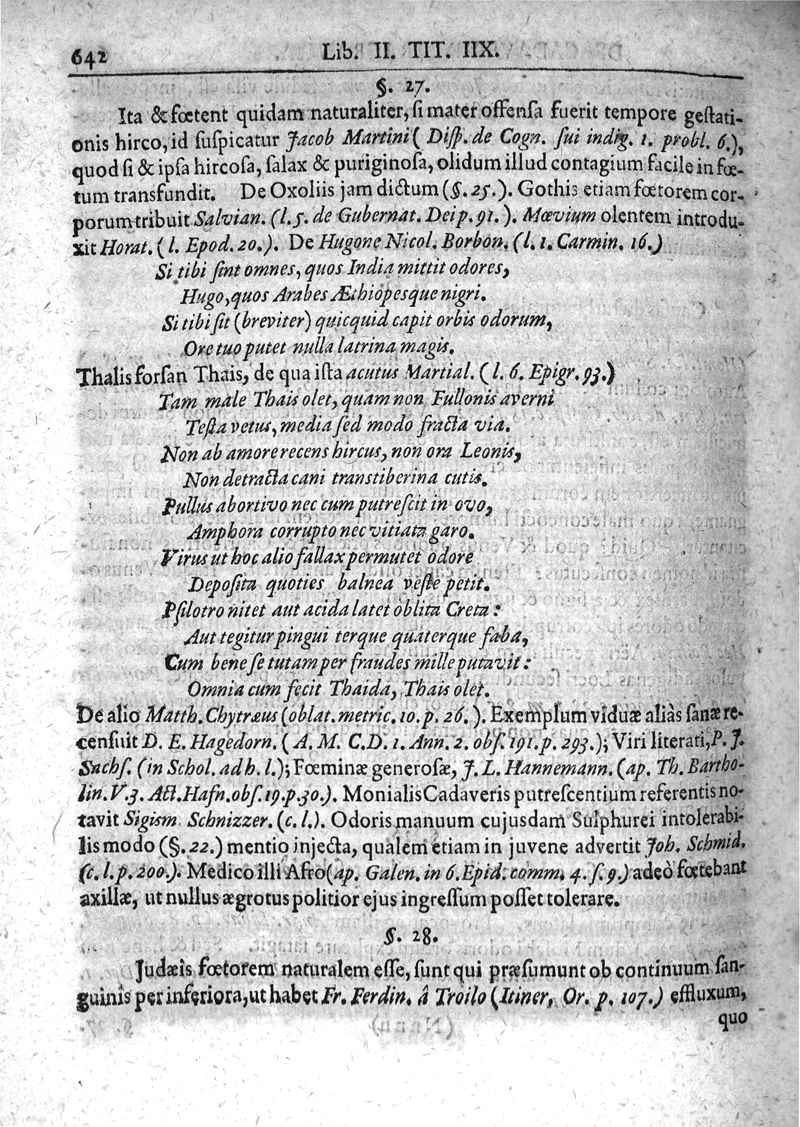 642 Lib. II. TIT. IIX.
§. 27.
Ita & fœtent quidam naturaliter, ſi mater offenſa fuerit tempore geſtati-
onis hirco, id ſuſpicatur Jacob Martini ( Diſp. de Cogn. ſui indig. 1. probl. 6.),
quod ſi & ipſa hircoſa, ſalax & puriginoſa, olidum illud contagium facile in fœ-
tum transfundit. De Oxoliis jam dictum (§. 25.). Gothis etiam fœtorem cor-
porum tribuit Salvian. (l. 5. de Gubernat. Dei p. 91.). Mœvium olentem introdu-
xit Horat. ( l. Epod. 20.). De Hugone Nicol. Borbon. (l. 1. Carmin. 16.)
Si tibi ſint omnes, quos India mittit odores,
Hugo, quos Arabes Æthiopesque nigri.
Si tibi ſit (breviter) quicquid capit orbis odorum,
Ore tuo putet nulla latrina magis.
Thalis forſan Thais, de qua iſta acutus Martial. ( l. 6. Epigr. 93.)
Tam male Thais olet, quam non Fullonis averni
Teſta vetus, media ſed modo fracta via.
Non ab amore recens hircus, non ora Leonis,
Non detracta cani transtiberina cutis.
Pullus abortivo nec cum putreſcit in ovo,
Amphora corrupto nec vitiata garo.
Virus ut hoc alio fallax permutet odore
Depoſita quoties balnea veſte petit.
Pſilotro nitet aut acida latet oblita Creta:
Aut tegitur pingui terque quaterque faba,
Cum bene ſe tutam per fraudes mille putavit:
Omnia cum fecit Thaida, Thais olet.
De alio Matth. Chytræus (oblat. metric. 10. p. 26.). Exemplum viduæ aliàs ſanæ re-
cenſuit D. E. Hagedorn. ( A. M. C. D. 1. Ann. 2. obſ. 191. p. 293.); Viri literati, P. J.
Sachſ. (in Schol. ad h. l.); Fœminæ generoſæ, J. L. Hannemann. (ap. Th. Bartho-
lin. V. 3. Act. Hafn. obſ. 19. p. 30.). Monialis Cadaveris putreſcentium referentis no-
tavit Sigism. Schnizzer. (c. l.). Odoris manuum cujusdam Sulphurei intolerabi-
lis modo (§. 22.) mentio injecta, qualem etiam in juvene advertit Joh. Schmid.
(c. l. p. 200.). Medico illi Afro (ap. Galen. in 6. Epid. comm. 4. ſ. 9.) adeò fœtebant
axillæ, ut nullus ægrotus politior ejus ingreſſum poſſet tolerare.
§. 28.
Judæis fœtorem naturalem eſſe, ſunt qui præſumunt ob continuum ſan-
guinis per inferiora, ut habet Fr. Ferdin. â Troilo (Itiner, Or. p. 107.) effluxum,
quo